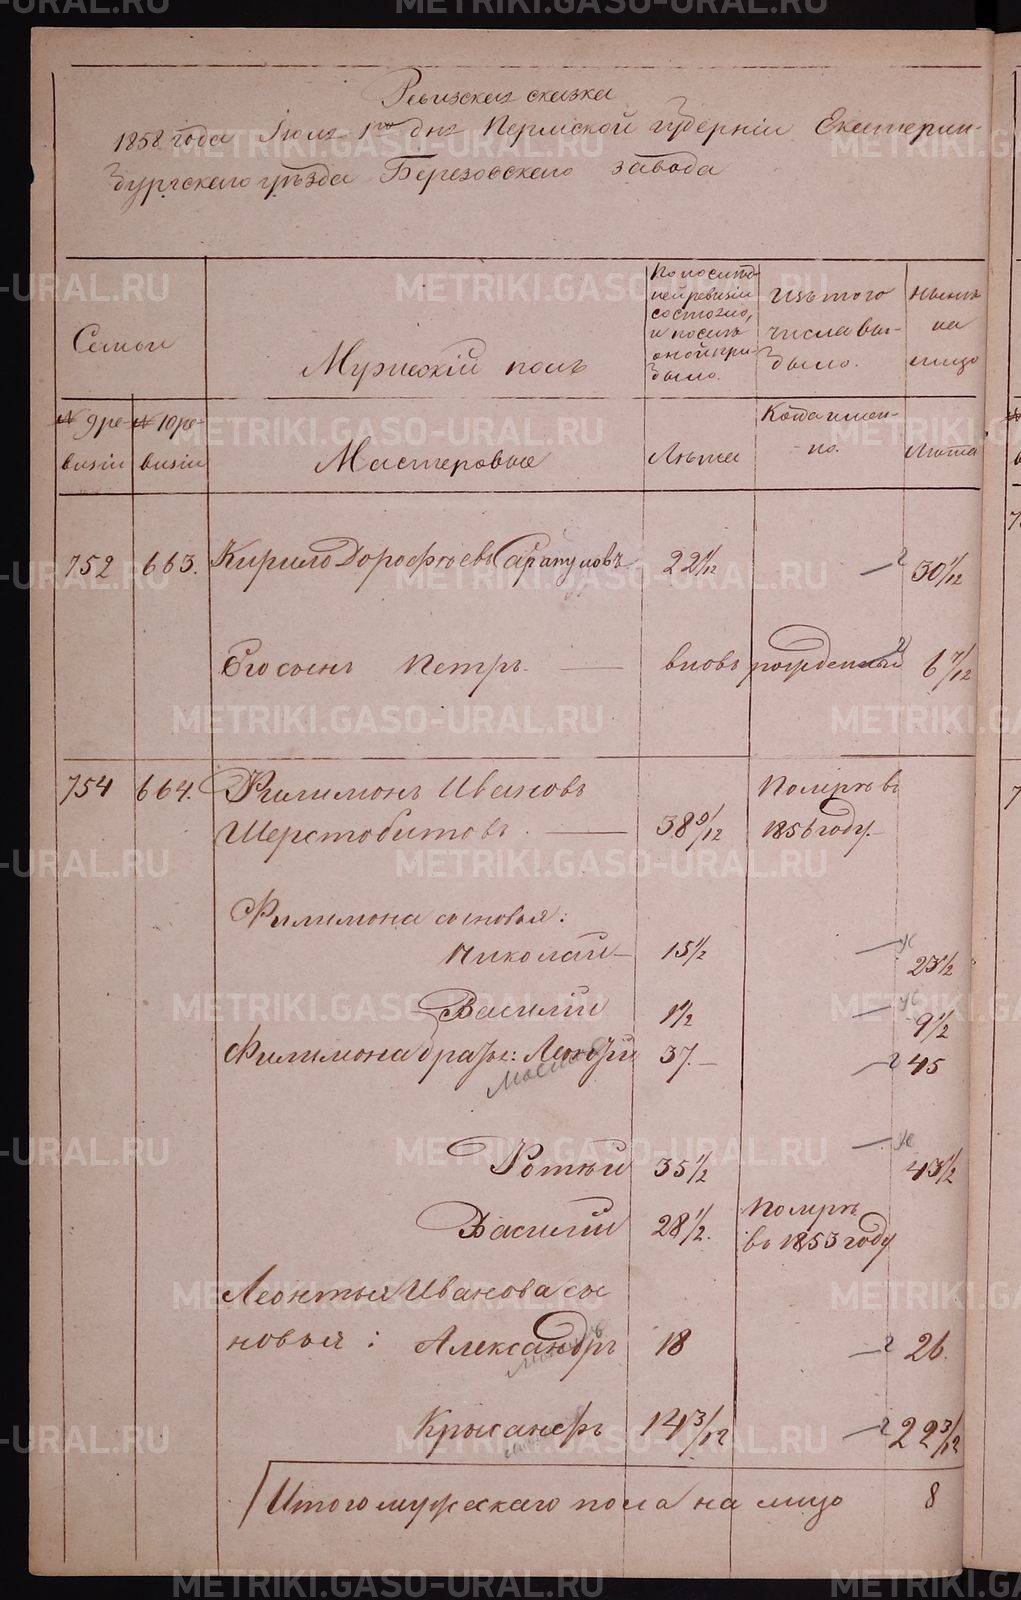 Ревизская сказка
1858 года Июля 1го дня Пермской губерніи Екатерин-
бургского уѣзда Березовского завода
Семьи
Мужескій полъ
По послѣд-
ней ревизіи
состояло,
и послѣ
оной при-
было.
Изъ того
числа вы-
было.
Нынѣ
на
лицо
№ 9 ре-
визіи
№ 10 ре-
визіи
Мастеровые
Лѣта
Когда имен-
но.
Лѣта
752 663. Кирило Дорофѣевъ Сарапуловъ 22 1/12 — 30 1/12
Его сынъ Петръ. — вновь рожденный 6 7/12
754 664. Филимонъ Ивановъ Помре въ
Шерстобитовъ. — 38 9/12 1856 году.
Филимона сыновья:
Николай 15 1/2 — 23 1/2
Василій 1 1/2 — 9 1/2
Филимона братья: Леонтій 37. — 45
Фотѣй 35 1/2 — 43 1/2
Василій 28 1/2. Помре
въ 1853 году
Леонтья Иванова сы
новья: Александръ 18 — 26.
Крысанфъ 14 3/12 — 22 3/12
Итого мужескаго пола на лицо 8
METRIKI.GASO-URAL.RU